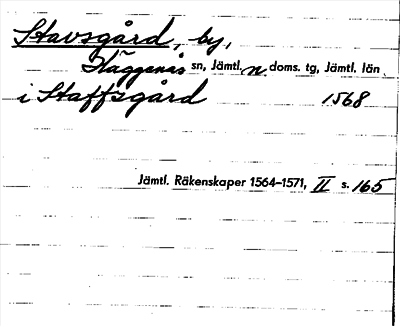 Stavsgård, by,
Häggenås sn, Jämtl. n. doms. tg, Jämtl. län
i Staffsgård 1568
Jämtl. Räkenskaper 1564–1571, II s. 165